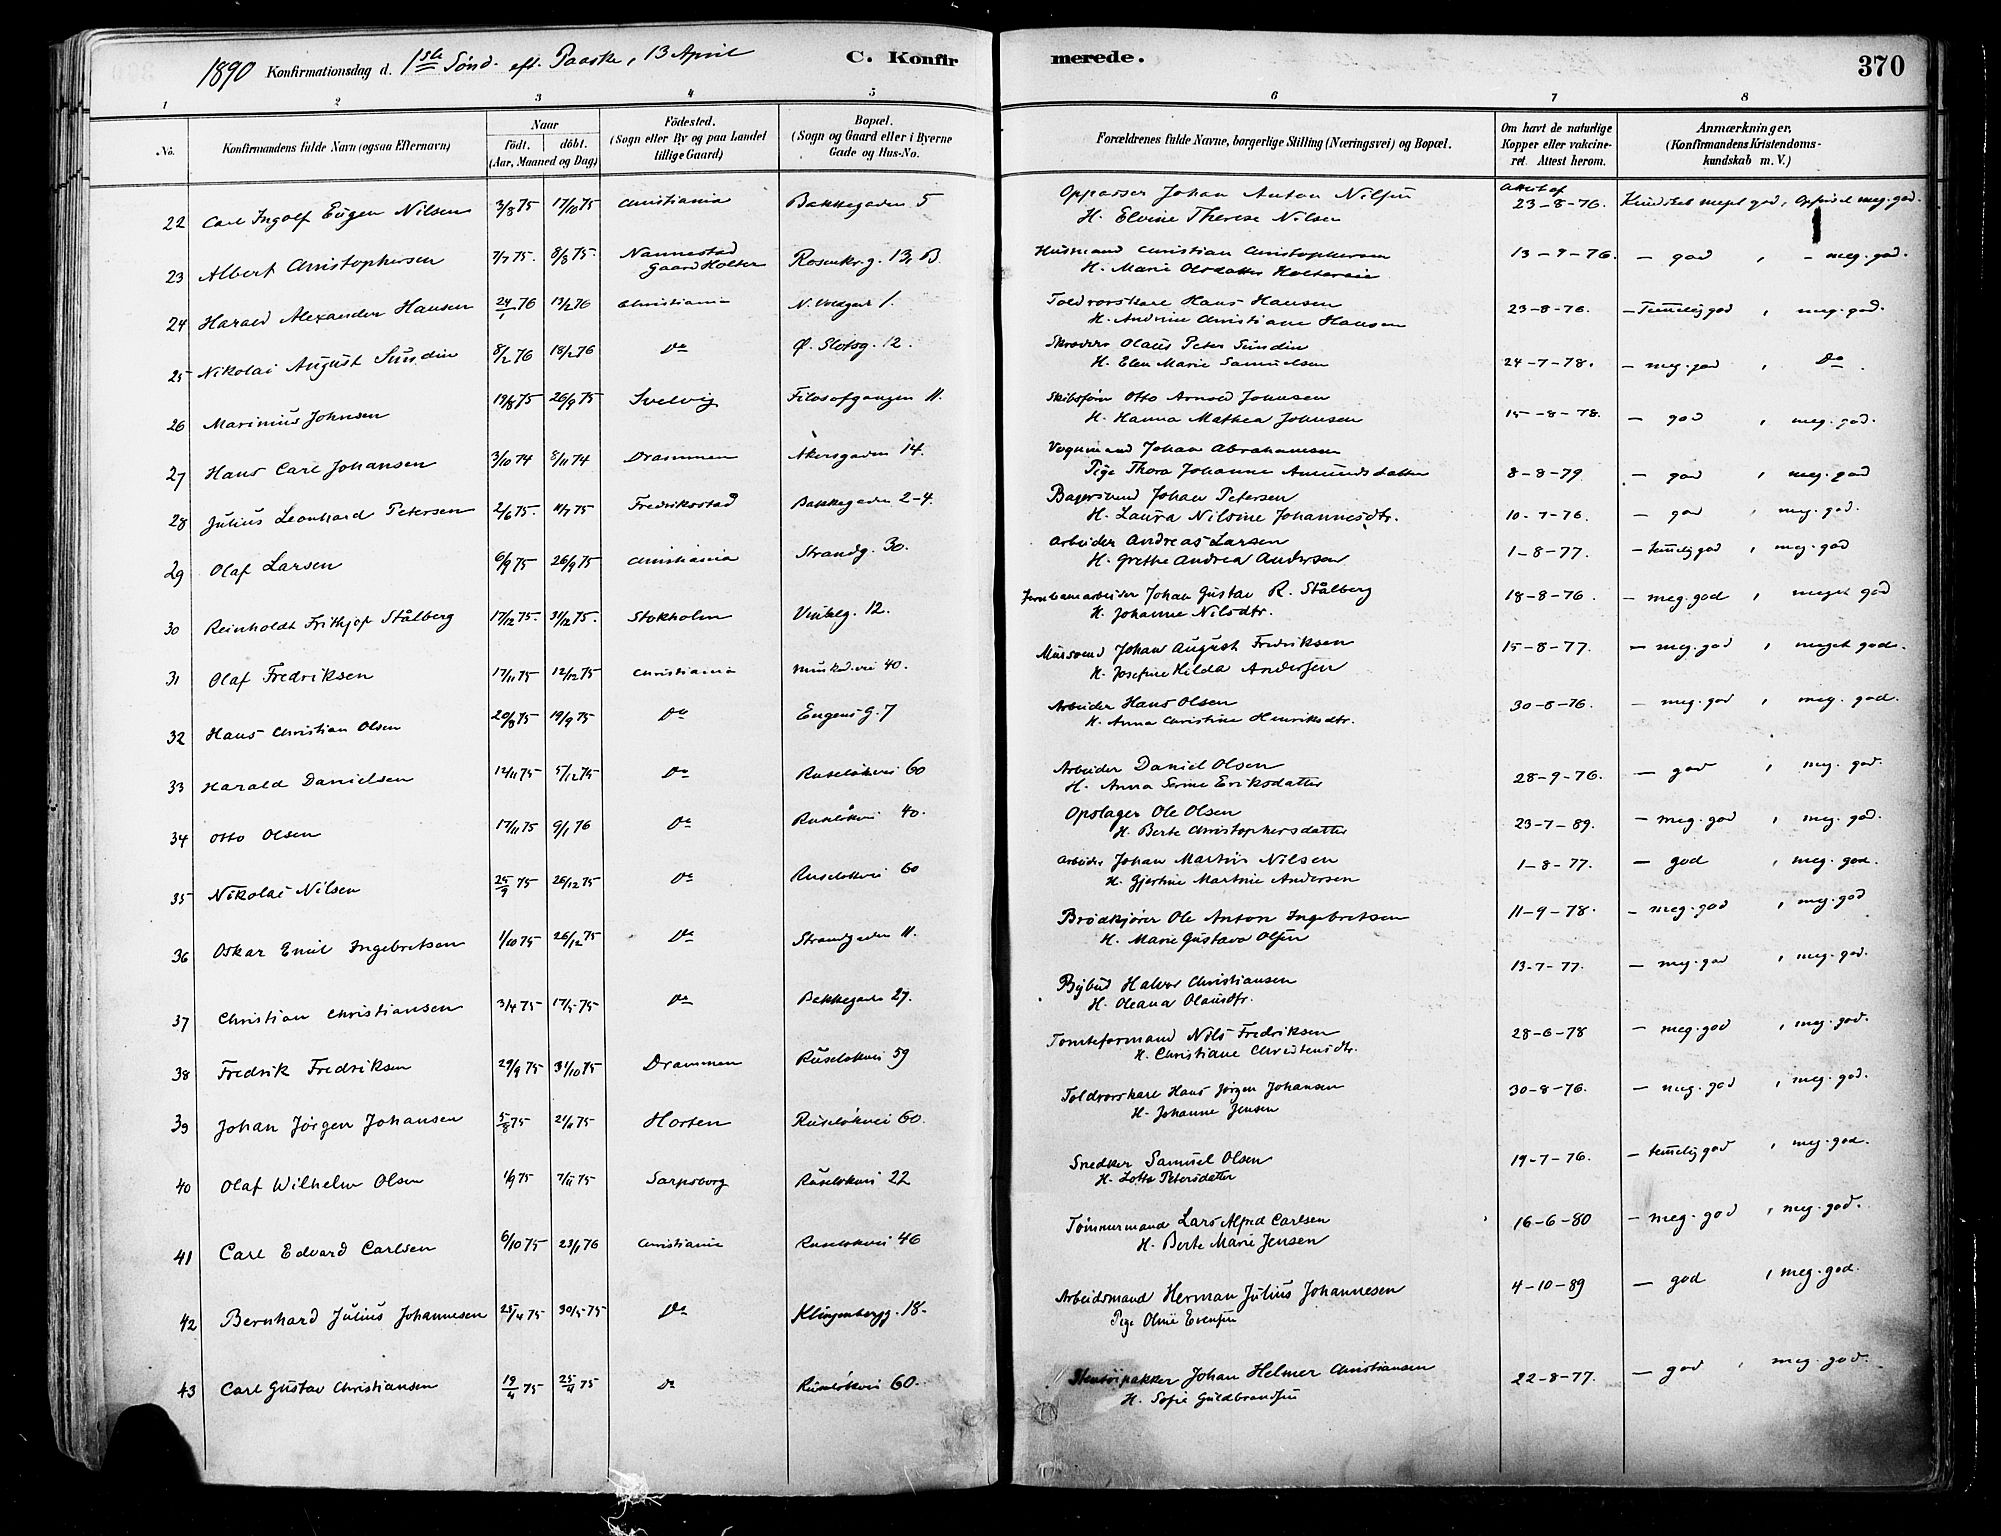 1890 Konfirmationsdag d. 1ste Sønd. eft. Paaske, 13 April C. Konfirmerede. 370
1 2 3 4 5 6 7 8
No. Konfirmandens fulde Navn (ogsaa Efternavn) Naar født. døbt. (Aar, Maaned og Dag) Fødested. (Sogn eller By og paa Landet tillige Gaard) Bopæl. (Sogn og Gaard eller i Byerne Gade og Hus-No. Forældrenes fulde Navne, borgerlige Stilling (Næringsvei) og Bopæl. Om havt de naturlige Kopper eller vakcineret. Attest herom. Anmærkninger, (Konfirmandens Kristendomskundskab m. V.)
22 Carl Ingolf Eugen Nilsen 3/8 75 17/10 75 Christiania Bakkegaden 5 Oppasser Johan Anton Nilsen Attest af 23-8-76. Kundskab meget god, Opførsel meg. god.
H. Elvine Therese Nilsen
23 Albert Christophersen 7/7 75. 8/8 75. Nannestad Gaard Holter Rosenkr. g. 13, B Husmand Christian Christophersen 13-9-76. – god , – meg. god.
H. Marie Olsdatter Holtereie
24 Harald Alexander Hansen 24/1 76 13/2 76 Christiania N. Voldgad 1. Toldvorskarl Hans Hansen 23-8-76. – Temmelig god , meg. god.
H. Andrine Christiane Hansen
25 Nikolai August Sundin 8/2 76 18/2 76 Do Ø. Slotsg. 12. Skrædder Olaus Peter Sundin 24-7-78. – meg. god , Do
H. Elen Marie Samuelsen
26 Marinius Johnsen 19/8 75 26/9 75 Svelvig Filosofgangen 11. Skibsfør Otto Arnold Johnsen 15-8-78. – god , meg. god.
H. Hanna Mathea Johnsen
27 Hans Carl Johansen 3/10 74 8/11 74 Drammen Akersgaden 14. Vognmand Johan Abrahamsen
Pige Thora Johanne Amundsdatter 8-8-79 – god , meg. god
28 Julius Leonhard Petersen 2/6 75. 11/7 75 Fredriksstad Bakkegaden 2-4. Bagersvend Johan Petersen
H. Laura Nilsine Johannesdtr. 10-7-76. – god , meg. god.
29 Olaf Larsen 6/9 75 26/9 75 Christiania Strandg. 30. Arbeider Andreas Larsen 1-8-77. – temmelig god , meg. god
H. Grethe Andrea Andersen
30 Reinholdt Frithjof Stålberg 17/12 75. 31/12 75. Stokholm Vinkelg. 12. Jernbanearbeider Johan Gustav R. Stålberg 18-8-76. – meg. god , meget god
H. Johanne Nilsdtr.
31 Olaf Fredriksen 17/11 75 12/12 75 Christiania Munked. vei 40. Mursvend Johan August Fredriksen 15-8-77. – meg. god , meget god.
H. Josefine Hilda Andersen
32 Hans Christian Olsen 20/8 75 19/9 75 Do Eugens G. 7 Arbeider Hans Olsen 30-8-76. – meg. god , meg. god.
H. Anna Christine Henriksdtr.
33 Harald Danielsen 12/11 75 5/12 75 Do Ruseløkvei 60 Arbeider Daniel Olsen 28-9-76. – god , meg. god.
H. Anna Serine Eriksdatter
34 Otto Olsen 17/11 75 9/1 76 Do Ruseløkvei 40. Opslager Ole Olsen 23-7-89. – meg. god , meg. god.
H. Berte Christophersdatter
35 Nikolai Nilsen 25/9 75 26/12 75 Do Ruseløkvei 60 Arbeider Johan Martin Nilsen 1-8-77. – god , meg. god.
H. Gjertine Martine Andersen
36 Oskar Emil Ingebretsen 1/10 75 26/12 75 Do Strandgaden 11. Brødkjører Ole Anton Ingebretsen 11-9-78. – meg. god , meg. god
H. Marie Gustava Olsen
37 Christian Christiansen 3/4 75 17/5 75 Do Bakkegaden 27. Bybud Halvor Christiansen 13-7-77. – meg. god , meg. god.
H. Oleana Olausdtr.
38 Fredrik Fredriksen 29/9 75 31/10 75 Drammen Ruseløkvei 59 Tomteformand Nils Fredriksen 28-6-78 – meg. god , meg. god.
H. Christiane Christensdtr.
39 Johan Jørgen Johansen 5/8 75 21/11 75 Horten Ruseløkvei 60. Toldvorskarl Hans Jørgen Johansen 30-8-76. – meg. god , meg. god.
H. Johanne Jensen
40 Olaf Wilhelm Olsen 1/9 75 7/11 75 Sarpsborg Ruseløkvei 22 Snedker Samuel Olsen 19-7-76. – temmelig god , meg. god.
H. Lotta Petersdatter
41 Carl Edvard Carlsen 6/10 75 23/1 76 Christiania Ruseløkvei 46 Tømmermand Lars Alfred Carlsen 16-6-80 – meg. god , meg. god.
H. Berte Marie Jensen
42 Bernhard Julius Johannesen 25/4 75 30/5 75 Do Klingenbergg. 18. Arbeidsmand Herman Julius Johannesen 4-10-89 – god , meg. god.
Pige Oline Evensen
43 Carl Gustav Christiansen 19/4 75 25/4 75 Do Ruseløkvei 60. Stentøipakker Johan Helmer Christiansen 22-8-77. – god , meg. god.
H. Sofie Guldbrandsen